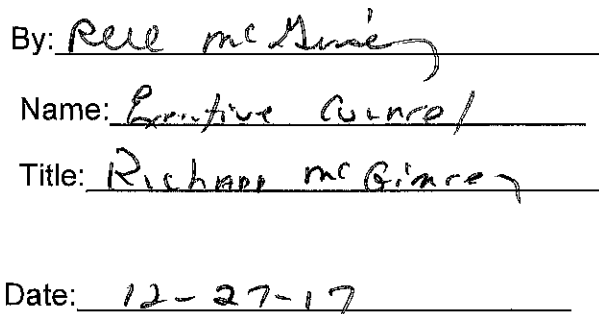 By: mc
Name: Executive Counsel
Title: Richard McGimsey
Date: 12-27-17